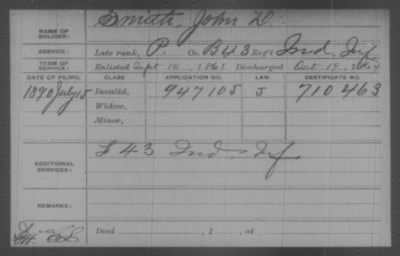 NAME OF SOLDIER: Smith, John D.
SERVICE: Late rank, P. Co. B 43 Reg't Ind. Inf
TERM OF SERVICE: Enlisted Sept 16, 1861 Discharged Oct. 19, 1864
DATE OF FILING. CLASS APPLICATION NO. LAW. CERTIFICATE NO.
1890 July 15 Invalid, 947105 J 710463
Widow,
Minor,
ADDITIONAL SERVICES: F 43 Ind. Inf
REMARKS:
Died , 1 , at